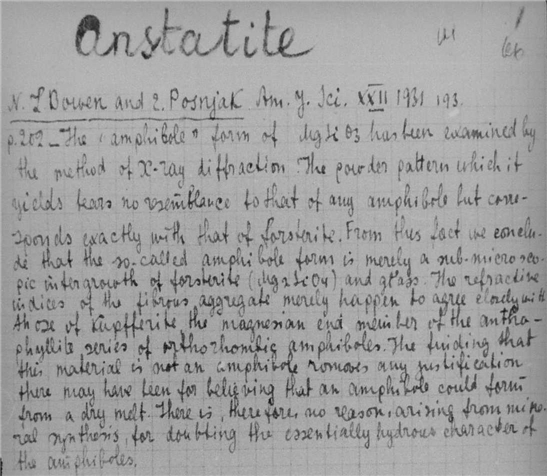 Anstatite
N. L Bowen and E. Posnjak Am. J. Sci. XXII 1931 193.
p.202 _ The "amphibole" form of MgSiO3 has been examined by
the method of X-ray diffraction. The powder pattern which it
yields bears no resemblance to that of any amphibole but corre-
sponds exactly with that of forsterite. From this fact we conclu-
de that the so-called amphibole form is merely a sub-microsco-
pic intergrowth of forsterite (Mg2SiO4) and glass. The refractive
indices of the fibrous aggregate merely happen to agree closely with
those of Kupfferite, the magnesian end member of the antho-
phyllite series of orthorhombic amphiboles. The finding that
this material is not an amphibole romoves any justification
there may have been for believing that an amphibole could form
from a dry melt. There is, therefore, no reason, arising from mine-
ral synthesis, for doubting the essentially hydrous character of
the amphiboles.